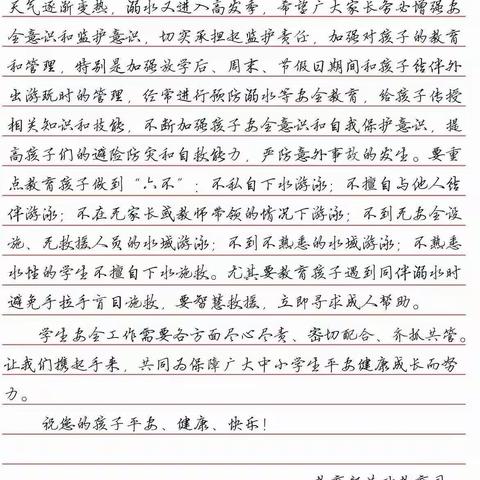 天气逐渐变热，溺水又进入高发季，希望广大家长务必增强安
全意识和监护意识，切实承担起监护责任，加强对孩子的教育
和管理，特别是加强放学后、周末、节假日期间和孩子结伴外
出游玩时的管理，经常进行预防溺水等安全教育，给孩子传授
相关知识和技能，不断加强孩子安全意识和自我保护意识，提
高孩子们的避险防灾和自救能力，严防意外事故的发生。要重
点教育孩子做到“六不”：不私自下水游泳；不擅自与他人结
伴游泳；不在无家长或教师带领的情况下游泳；不到无安全设
施、无救援人员的水域游泳；不到不熟悉的水域游泳；不熟悉
水性的学生不擅自下水施救。尤其要教育孩子遇到同伴溺水时
避免手拉手盲目施救，要智慧救援，立即寻求成人帮助。
学生安全工作需要各方面尽心尽责、密切配合、齐抓共管。
让我们携起手来，共同为保障广大中小学生平安健康成长而努
力。
祝您的孩子平安、健康、快乐！